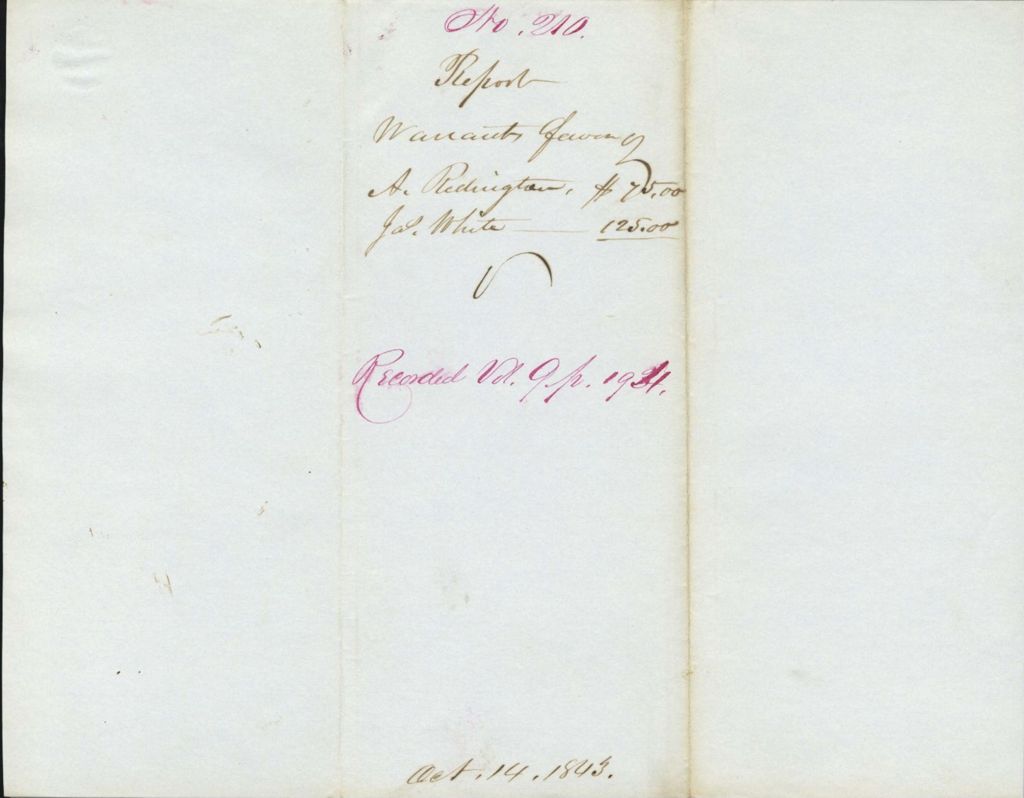 No. 210.
Report
Warrants favor of
A. Redington, $ 75.00
Jas. White 125.00
Recorded Vol. 9 p. 194.
Oct. 14. 1843.